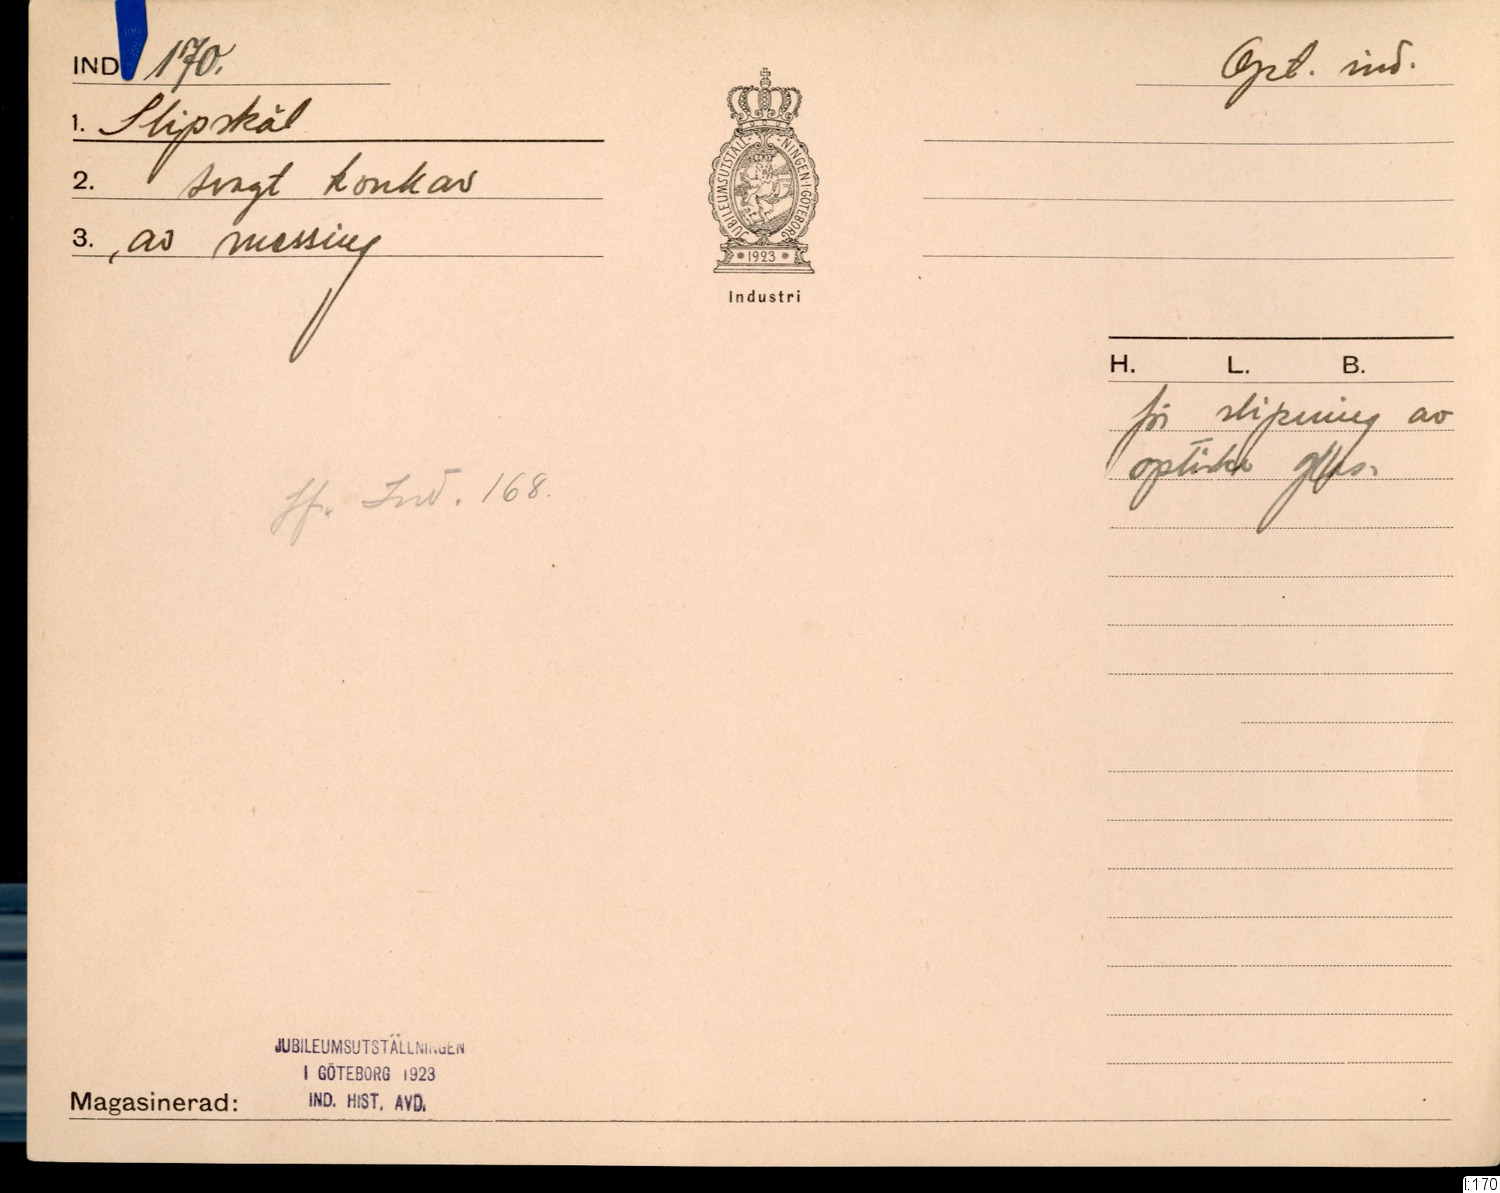 IND 170.
Opt. ind.
1. Slipskål
2. svagt konkav
3. , av messing
JUBILEUMSUTSTÄLLNINGEN I GÖTEBORG
* 1923 *
Industri
H. L. B.
för slipning av
optiska glas.
Jfr. Ind. 168.
JUBILEUMSUTSTÄLLNINGEN
I GÖTEBORG 1923
IND. HIST. AVD.
Magasinerad:
I:170